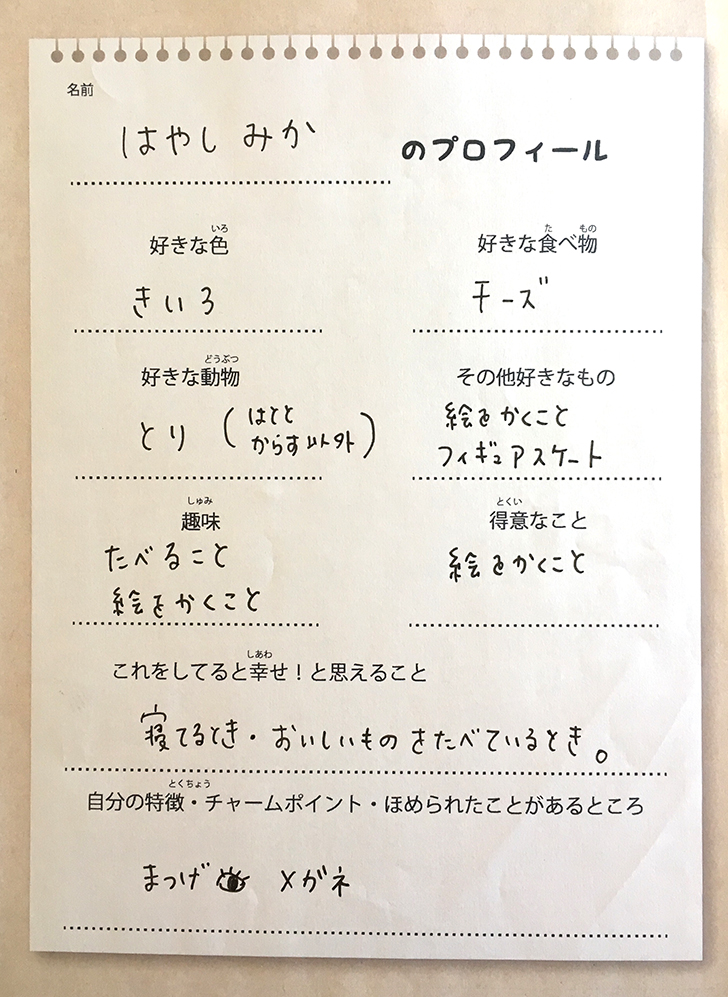 名前
はやし みか のプロフィール
いろ
好きな色
きいろ
た もの
好きな食べ物
チーズ
どうぶつ
好きな動物
とり (はとと
からす以外)
その他好きなもの
絵をかくこと
フィギュアスケート
しゅみ
趣味
たべること
絵をかくこと
とくい
得意なこと
絵をかくこと
しあわ
これをしてると幸せ!と思えること
寝てるとき・おいしいものをたべているとき。
とくちょう
自分の特徴・チャームポイント・ほめられたことがあるところ
まつげ メガネ